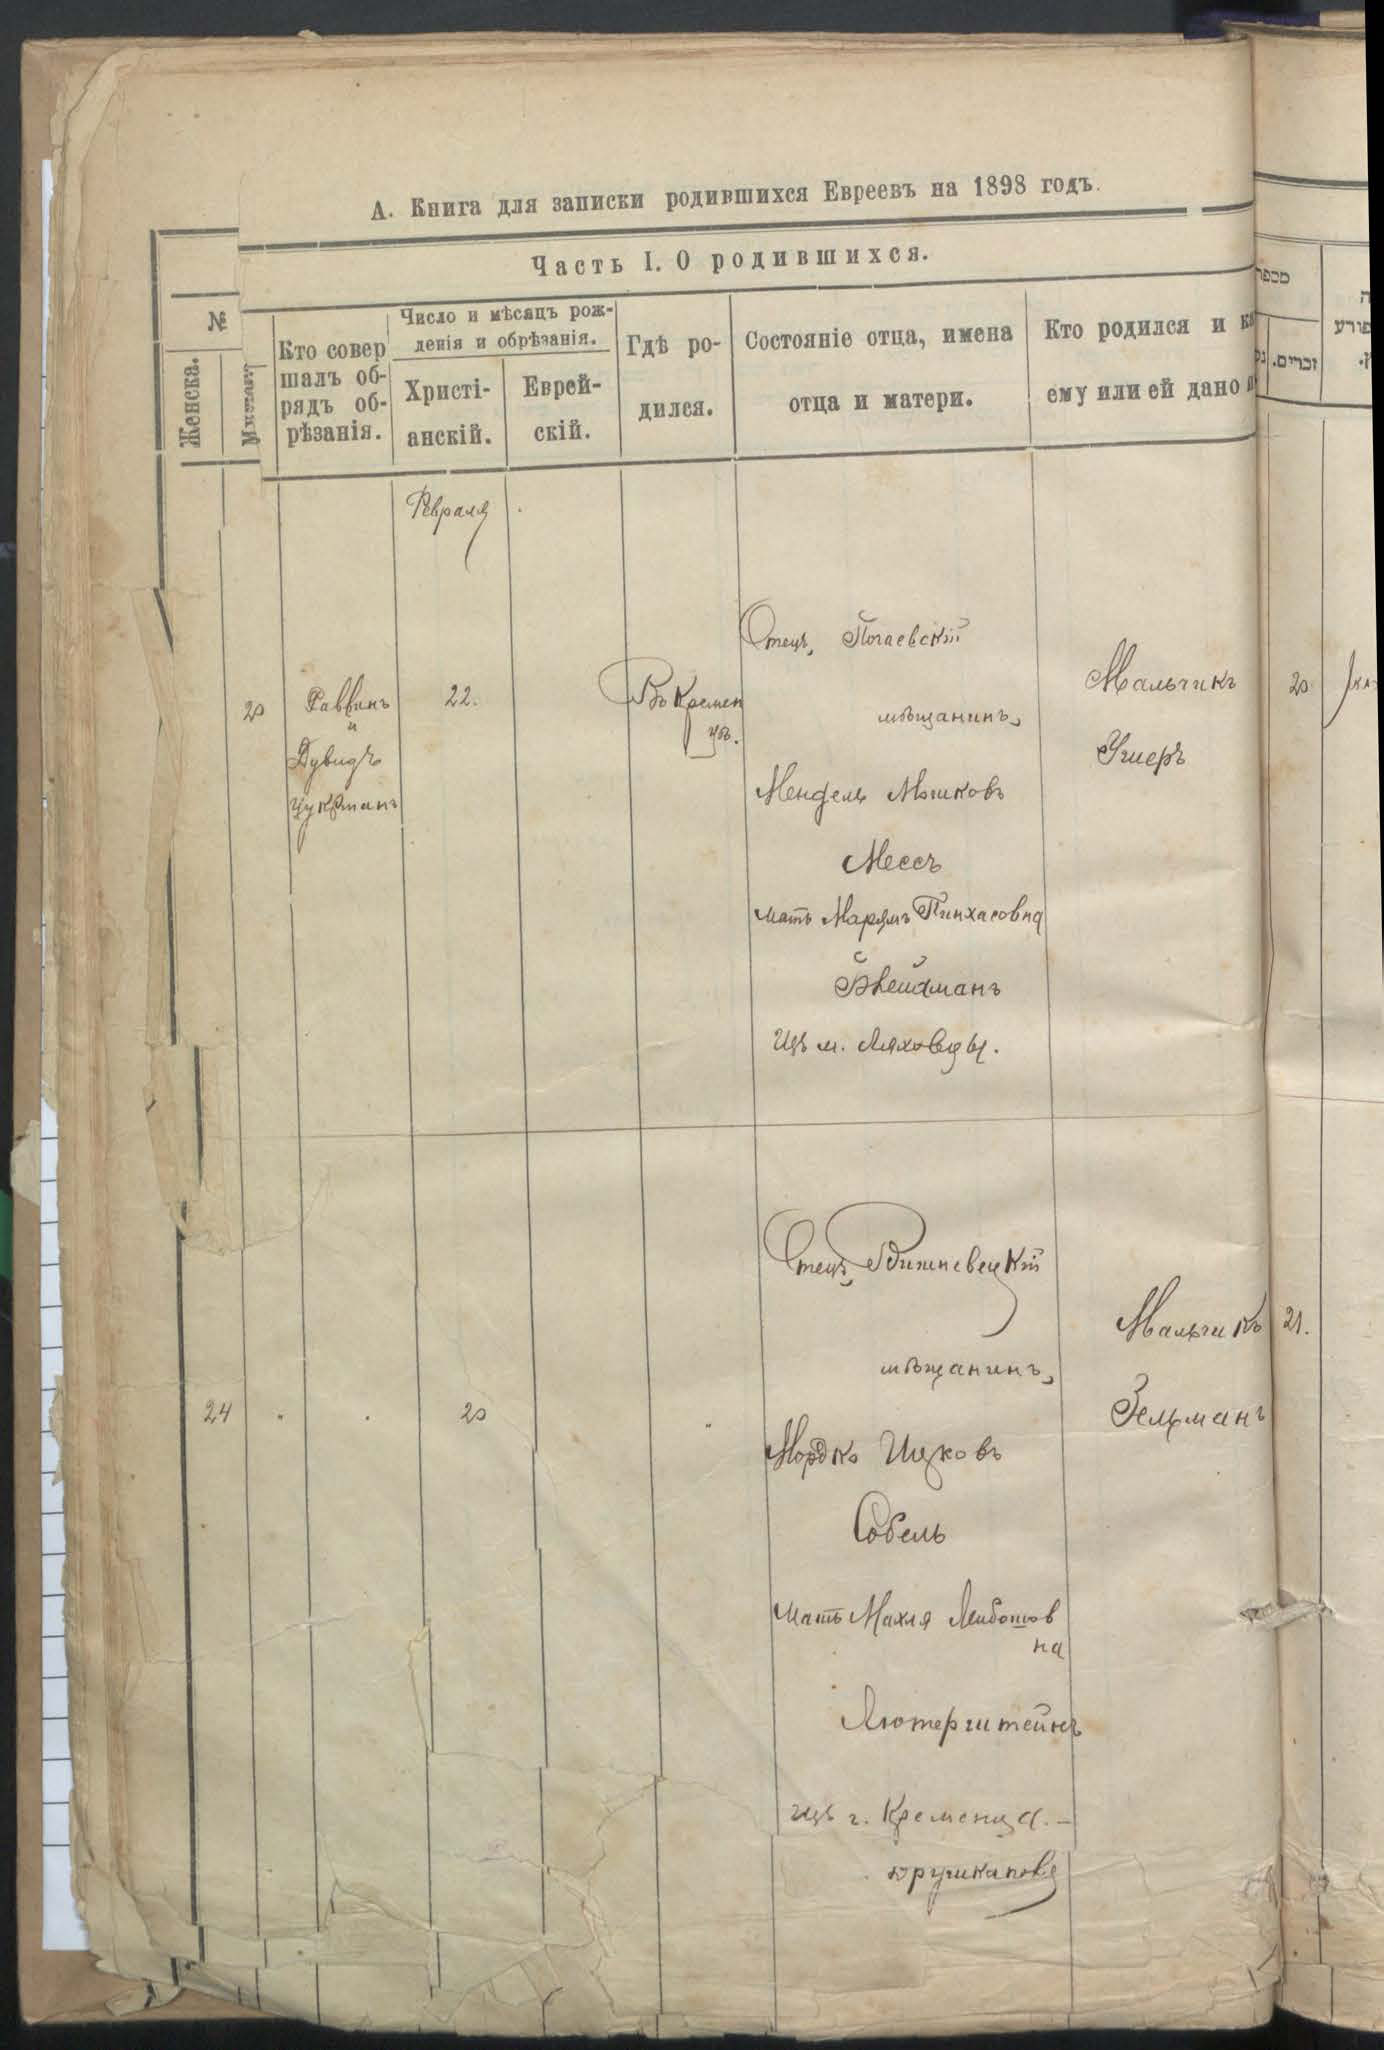 А. Книга для записки родившихся Евреевъ на 1898 годъ.
Часть I. О родившихся.
№
Женска.
Кто совер
шалъ об-
рядъ об-
рѣзанія.
Число и мѣсяцъ рож-
денія и обрѣзанія.
Христі-
анскій.
Еврей-
скій.
Гдѣ ро-
дился.
Состояніе отца, имена
отца и матери.
Кто родился и
ему или ей дано
מספר
זכרים.
Февраля
20
Раввинъ
и
Дувидъ
22.
Въ Кремен
цѣ.
Отецъ, Почаевскій
мѣщанинъ,
Мендель Мошковъ
Мессъ
мать Марямъ Пинхасовна
Изъ м. Ляховцы.
Мальчикъ
Ушеръ
20
24
20
Отецъ, Вишневецкій
мѣщанинъ,
Мордко Ицковъ
Собель
мать Махля Лейбошов
на
Лютерштейнъ
изъ г. Кременца. –
Мальчикъ
Зельманъ
21.